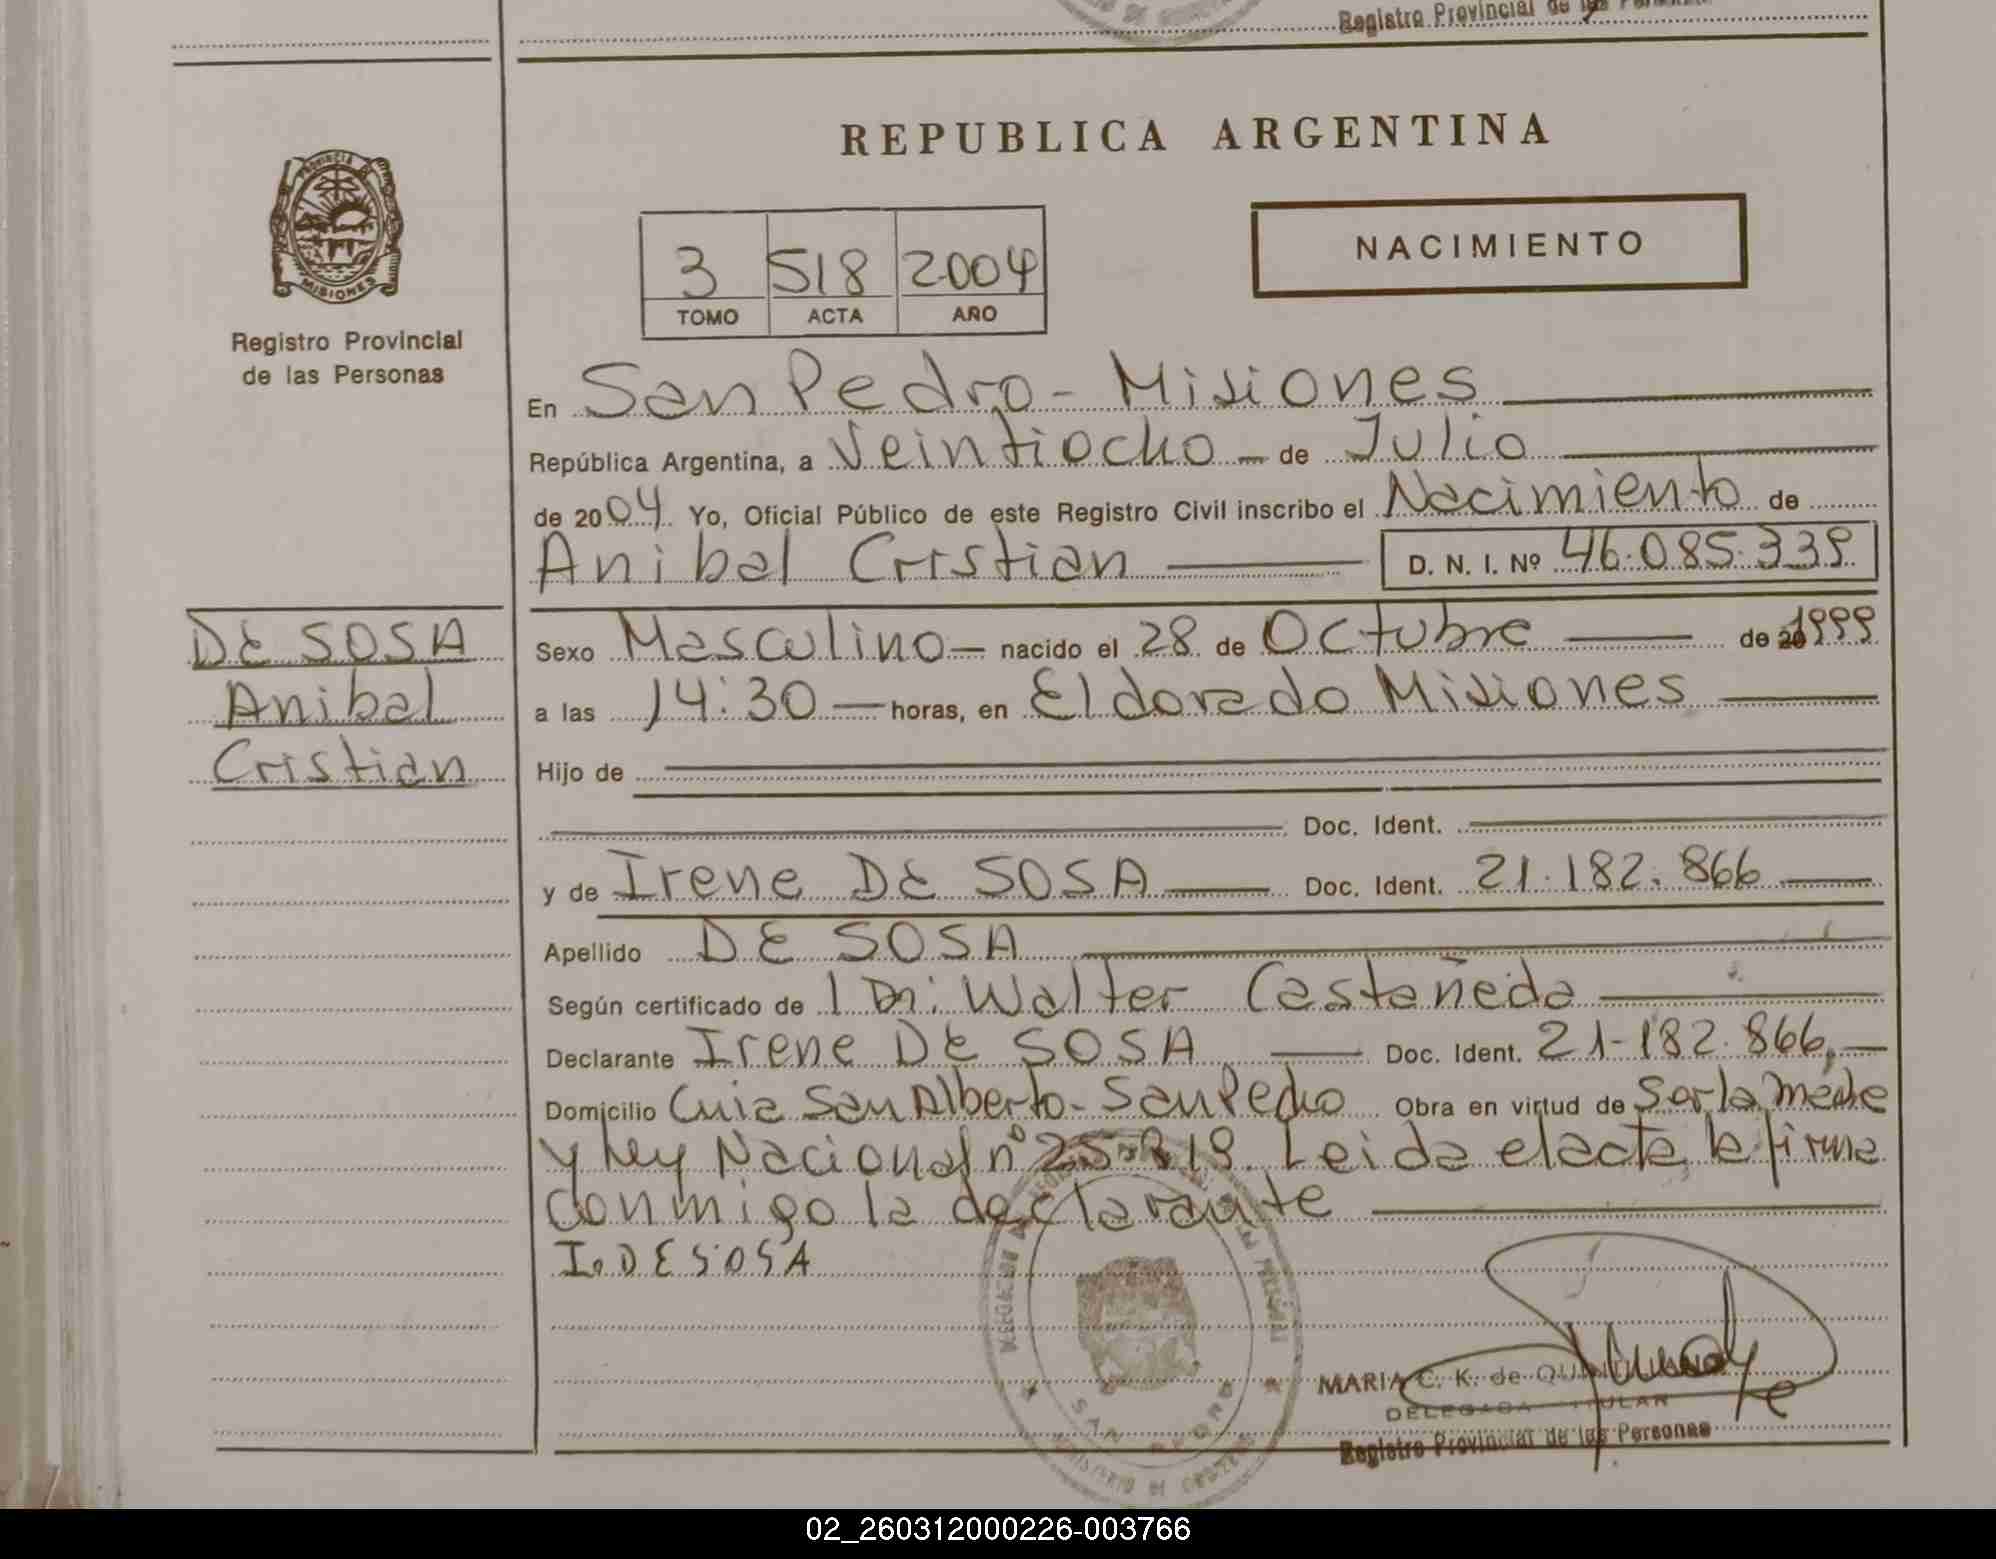 Registro Provincial de las Personas
REPUBLICA ARGENTINA
PROVINCIA
MISIONES
Registro Provincial
de las Personas
3 518 2004
TOMO ACTA AÑO
NACIMIENTO
En San Pedro - Misiones
República Argentina, a Veintiocho - de Julio
de 2004 Yo, Oficial Público de este Registro Civil inscribo el Nacimiento de
Anibal Cristian D. N. I. Nº 46.085.339
DE SOSA
Anibal
Cristian
Sexo Masculino — nacido el 28 de Octubre de 1999
a las 14:30 — horas, en Eldorado Misiones
Hijo de
Doc. Ident.
y de Irene DE SOSA Doc. Ident. 21.182.866
Apellido DE SOSA
Según certificado de Dr. Walter Castañeda
Declarante Irene DE SOSA Doc. Ident. 21-182.866,
Domicilio San Alberto - San Pedro Obra en virtud de Ser la madre
y ley Nacional nº 25.819. Leida el acta la firma
conmigo la declarante
I. DE SOSA
SAN PEDRO
MINISTERIO DE GOBIERNO
MARIA C. K. de
DELEGADA TITULAR
Registro Provincial de las Personas
02_260312000226-003766